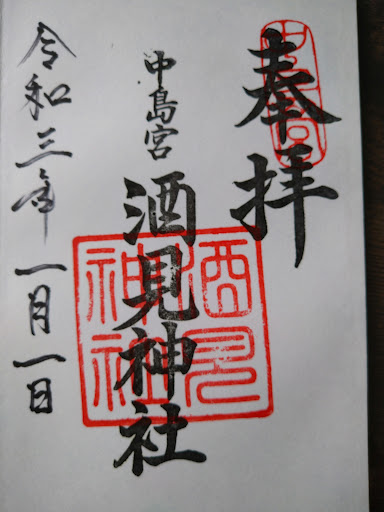 奉拝
中島宮
酒見神社
令和三年一月一日
酒見
神社